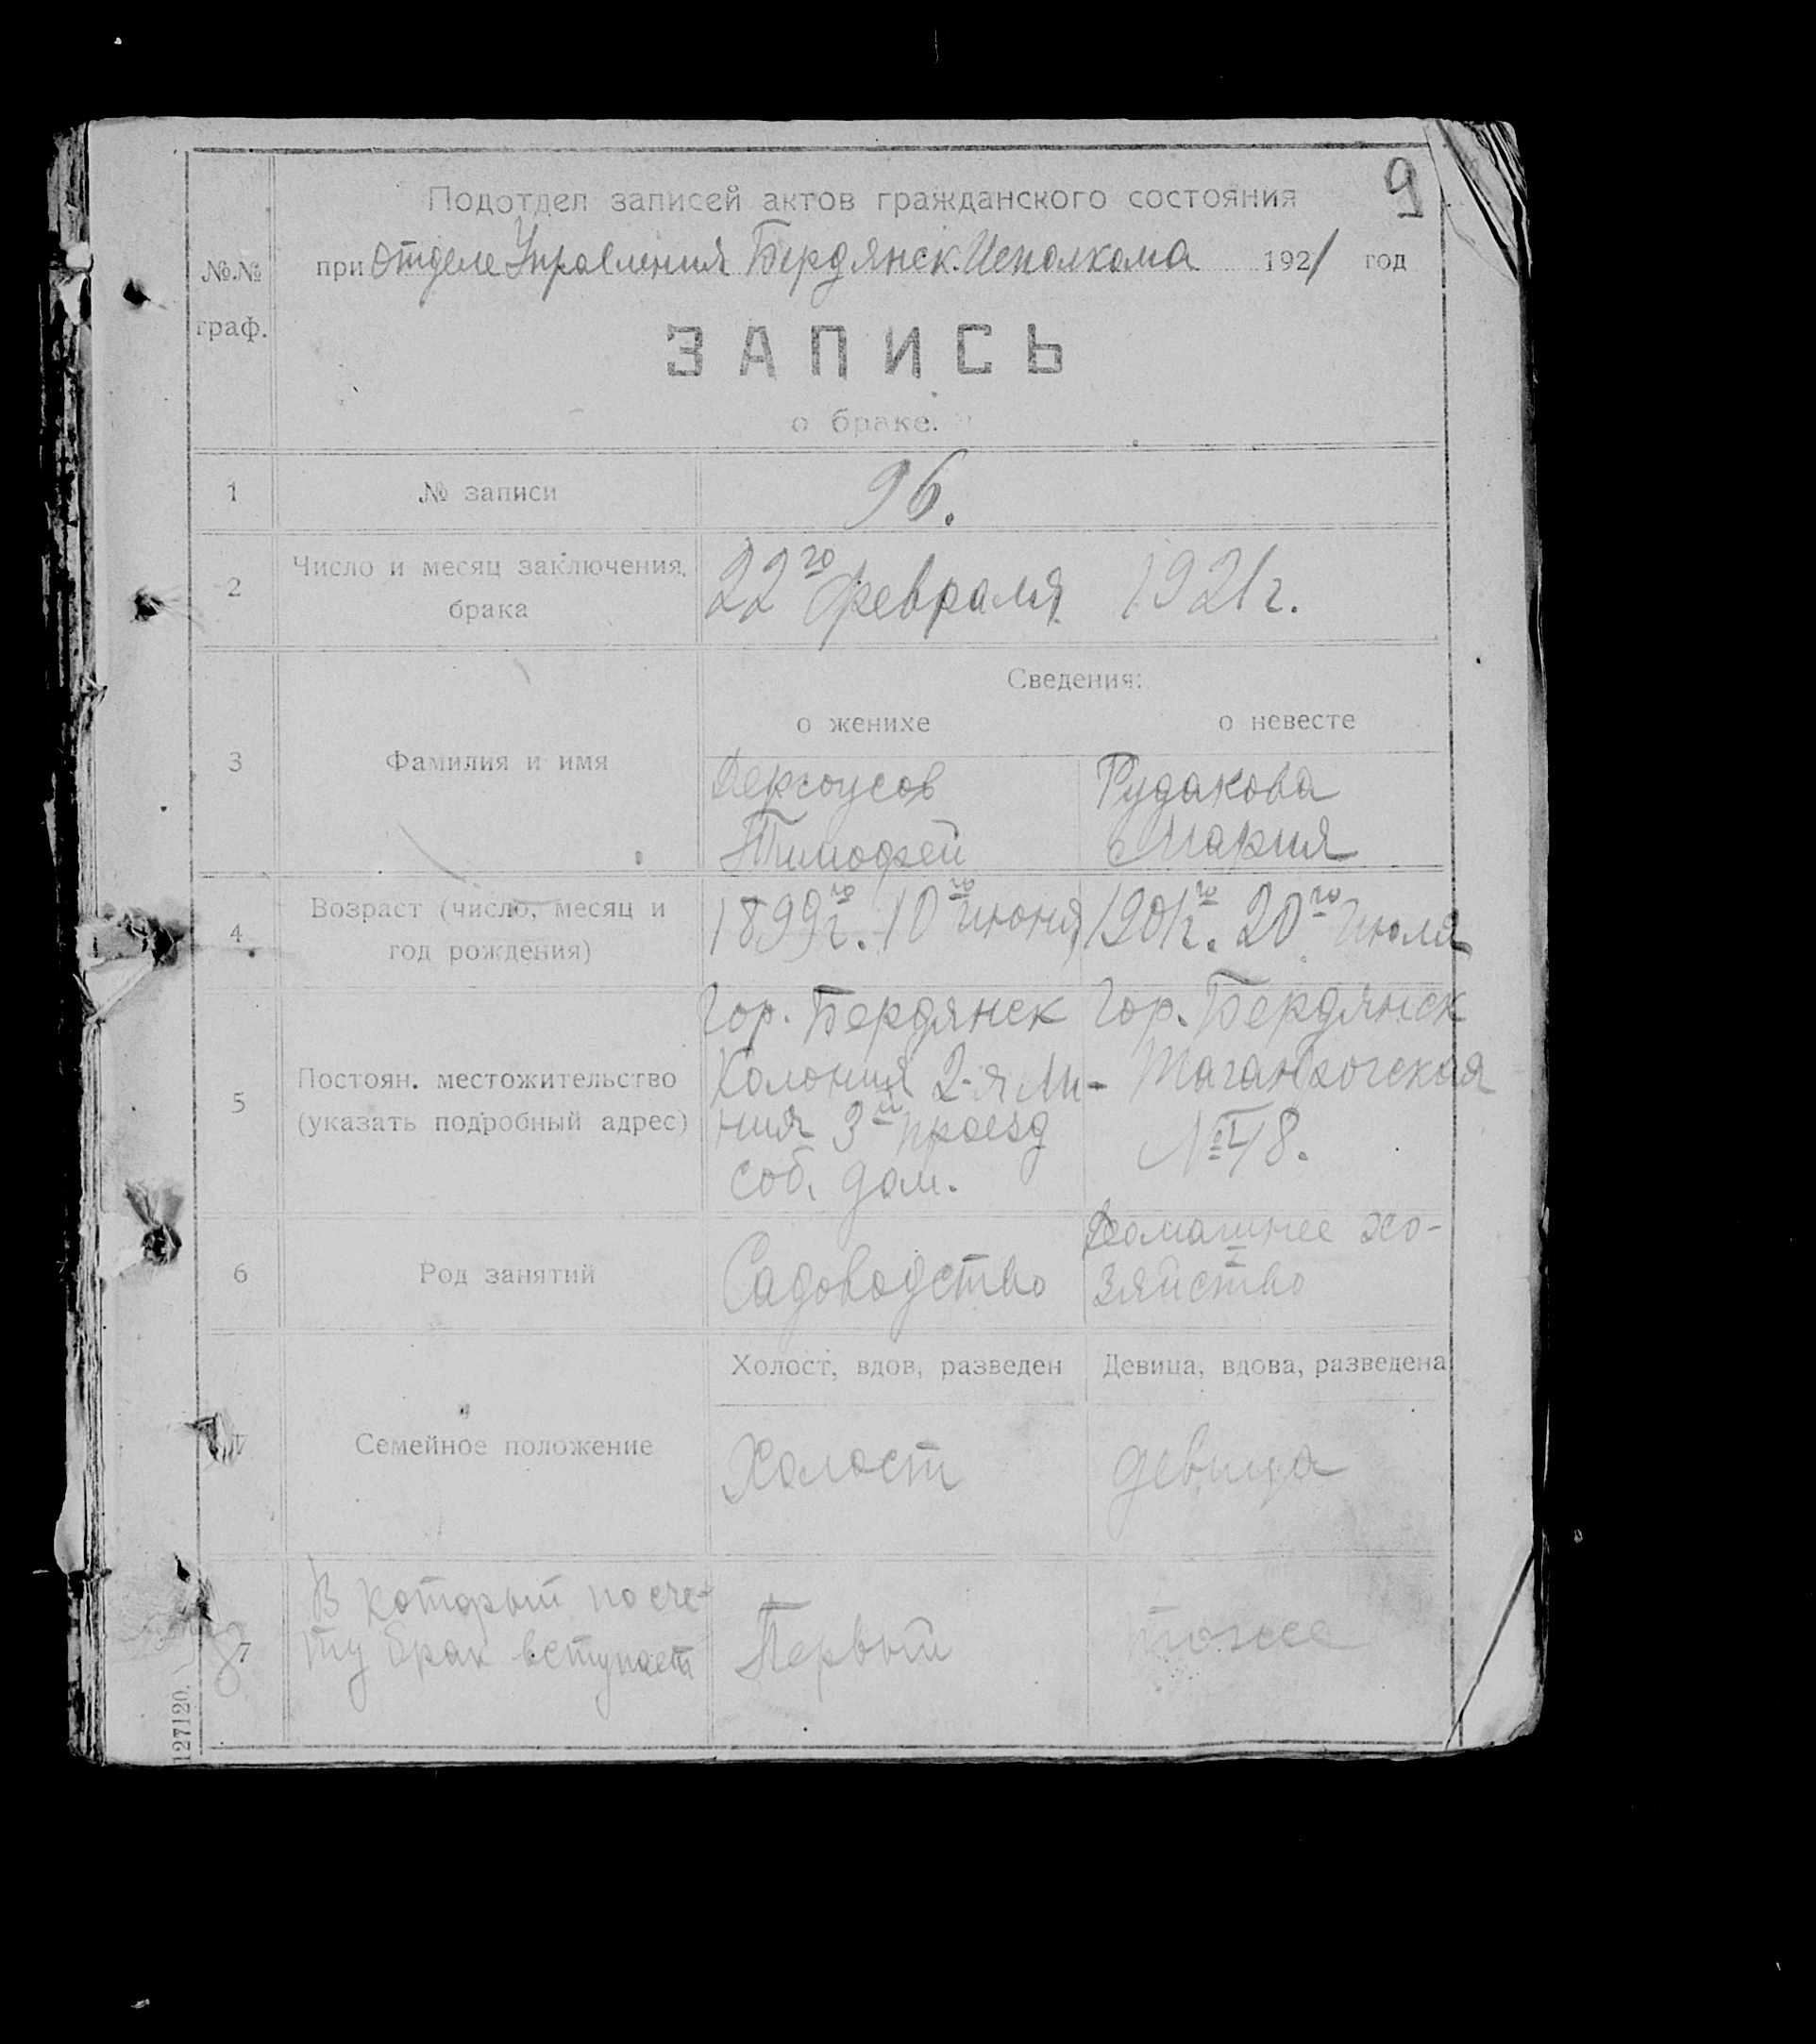 9
Подотдел записей актов гражданского состояния
при Отделе Управления Бердянск. Исполкома 1921 год
№.№
граф.
ЗАПИСЬ
о браке.
1 № записи 96.
2 Число и месяц заключения 22го февраля 1921 г.
брака
Сведения:
о женихе о невесте
3 Фамилия и имя
Дергоусов Рудакова
Тимофей Мария
4 Возраст (число, месяц и
год рождения)
1899го г. 10го июня 1901го г. 20го Июля
гор. Бердянск гор. Бердянск
5 Постоян. местожительство
(указать подробный адрес)
Колония 2-я Ли- Таганрогская
ния 3й проезд №48.
соб. дом.
6 Род занятий Садоводство Домашнее хо-
зяйство
Холост, вдов, разведен Девица, вдова, разведена
Семейное положение
Холост девица
8 7 В который по сче-
ту брак вступает Первый тоже
127120.